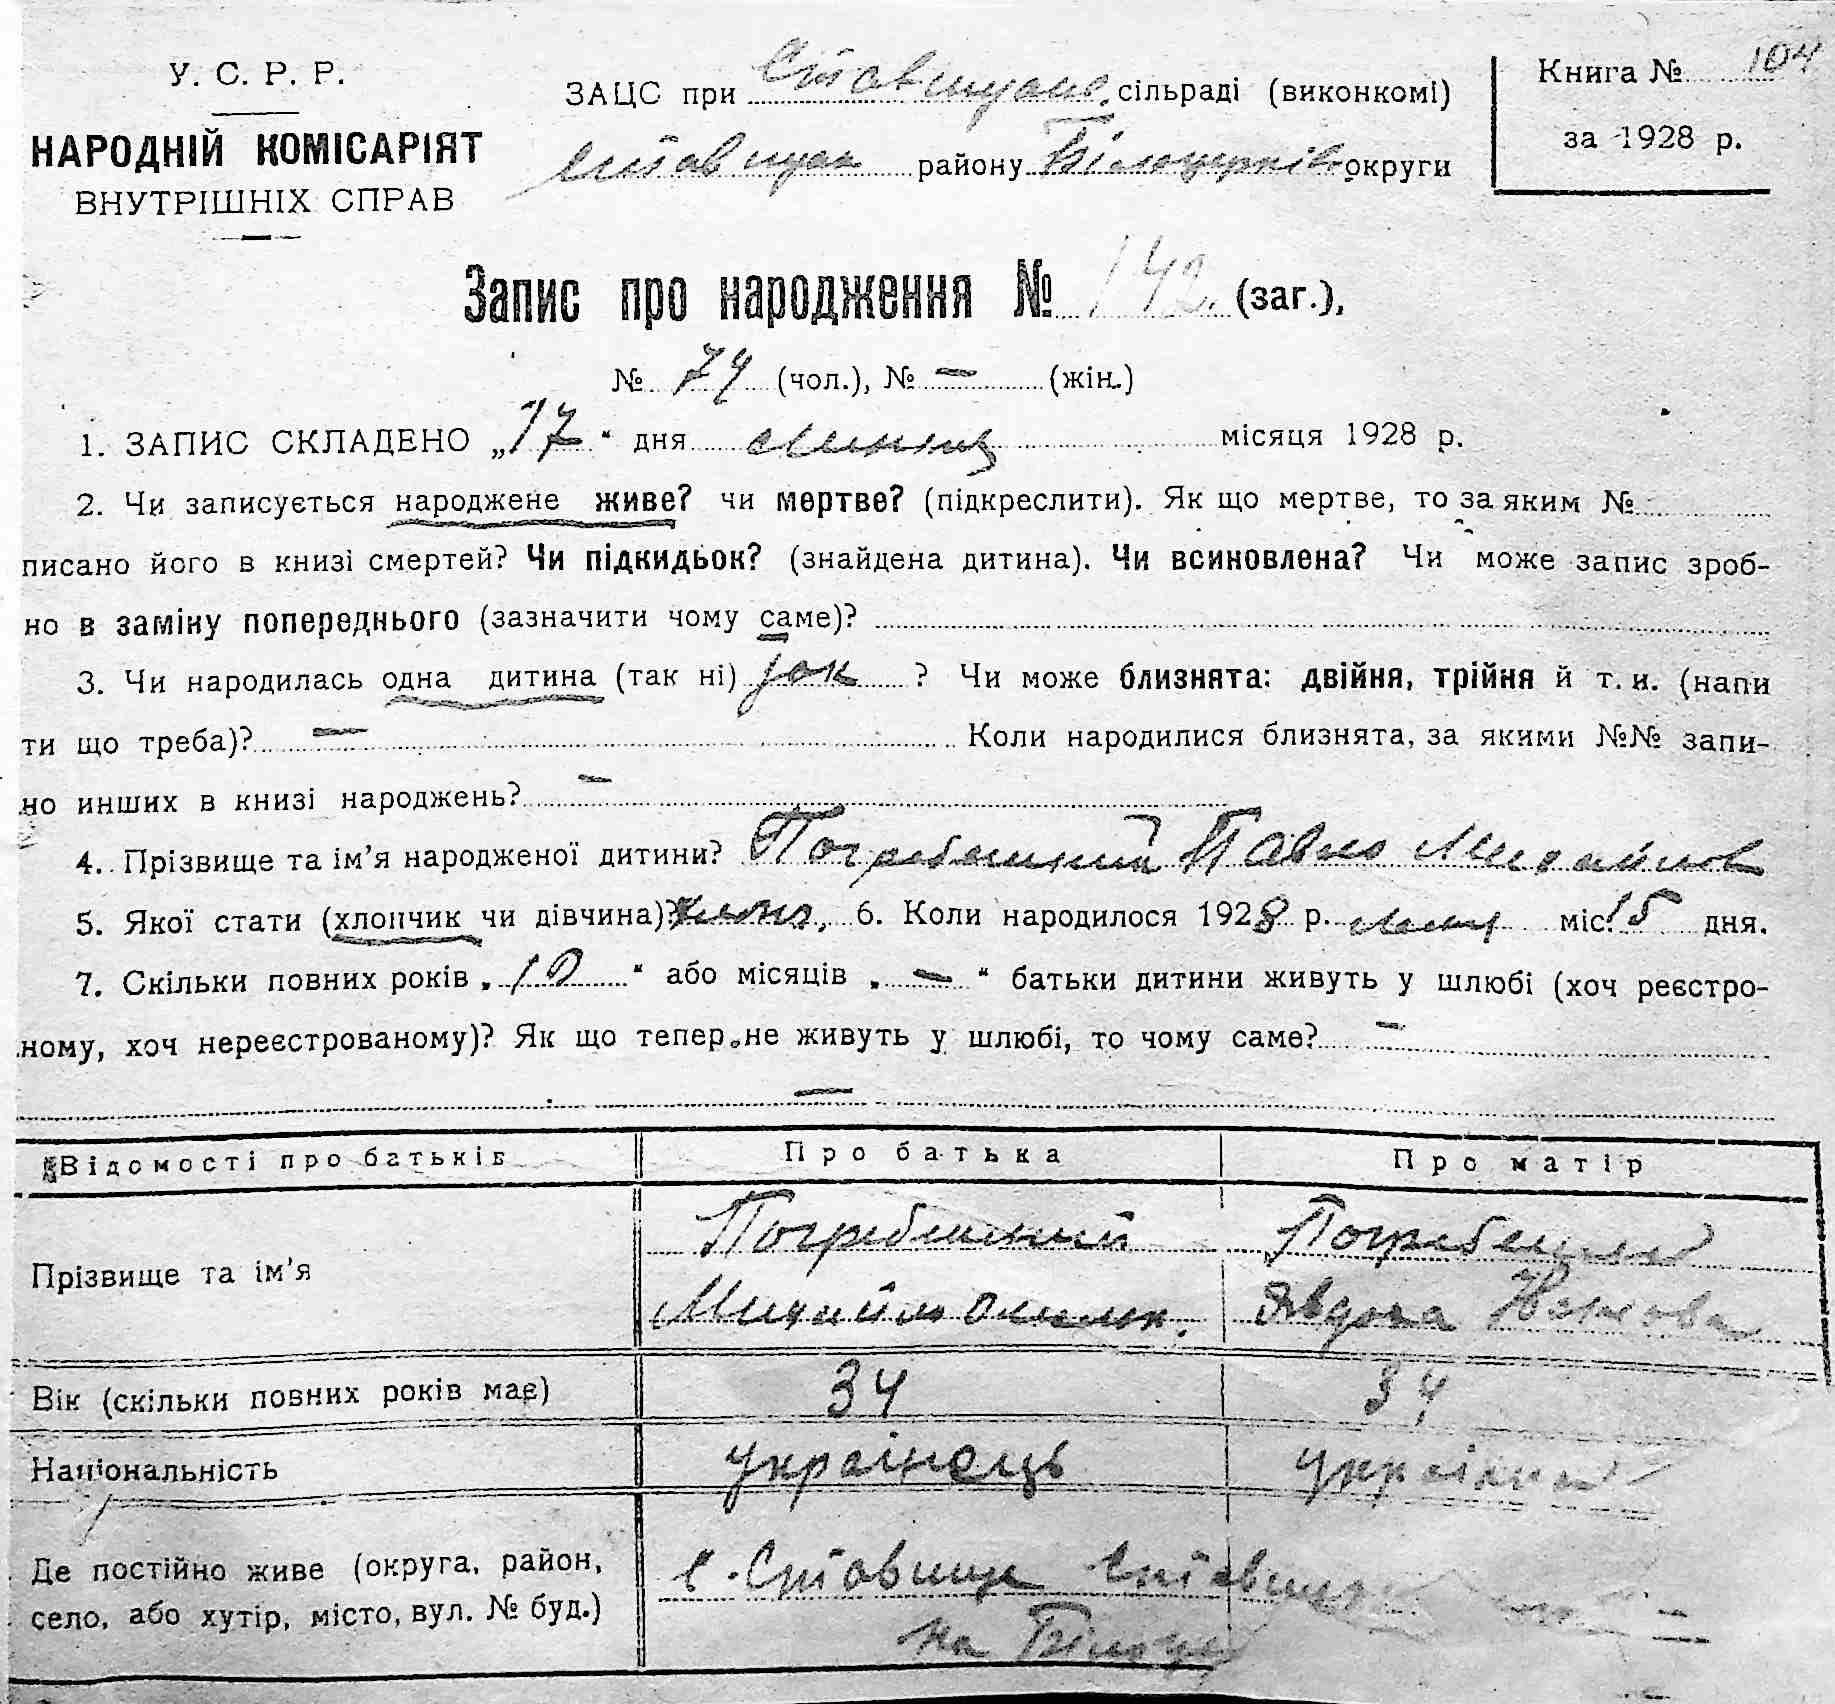 У. С. Р. Р.
НАРОДНІЙ КОМІСАРІЯТ
ВНУТРІШНІХ СПРАВ
ЗАЦС при Ставищане. сільраді (виконкомі)
Ставищан району Білоцерків округи
Книга № 104
за 1928 р.
Запис про народження № 142. (заг.),
№ 74 (чол.), № — (жін.)
1. ЗАПИС СКЛАДЕНО „17“ дня липня місяця 1928 р.
2. Чи записується народжене живе? чи мертве? (підкреслити). Як що мертве, то за яким №
писано його в книзі смертей? Чи підкидьок? (знайдена дитина). Чи всиновлена? Чи може запис зроб-
но в заміну попереднього (зазначити чому саме)?
3. Чи народилась одна дитина (так ні) так ? Чи може близнята: двійня, трійня й т. и. (напи
ти що треба)? — Коли народилися близнята, за якими №№ запи-
но инших в книзі народжень? —
4. Прізвище та ім'я народженої дитини? Погребищий Павло Михайлов
5. Якої стати (хлопчик чи дівчина)? хлопч. 6. Коли народилося 1928 р. липня міс. 15 дня.
7. Скільки повних років „10“ або місяців „—“ батьки дитини живуть у шлюбі (хоч реєстро-
ному, хоч нереєстрованому)? Як що тепер не живуть у шлюбі, то чому саме? —
—
Відомості про батьків Про батька Про матір
Прізвище та ім'я
Михайло Явдоха
Вік (скільки повних років має) 34 34
Національність українець українка
Де постійно живе (округа, район,
село, або хутір, місто, вул. № буд.)
с. Ставище
на Білоцер